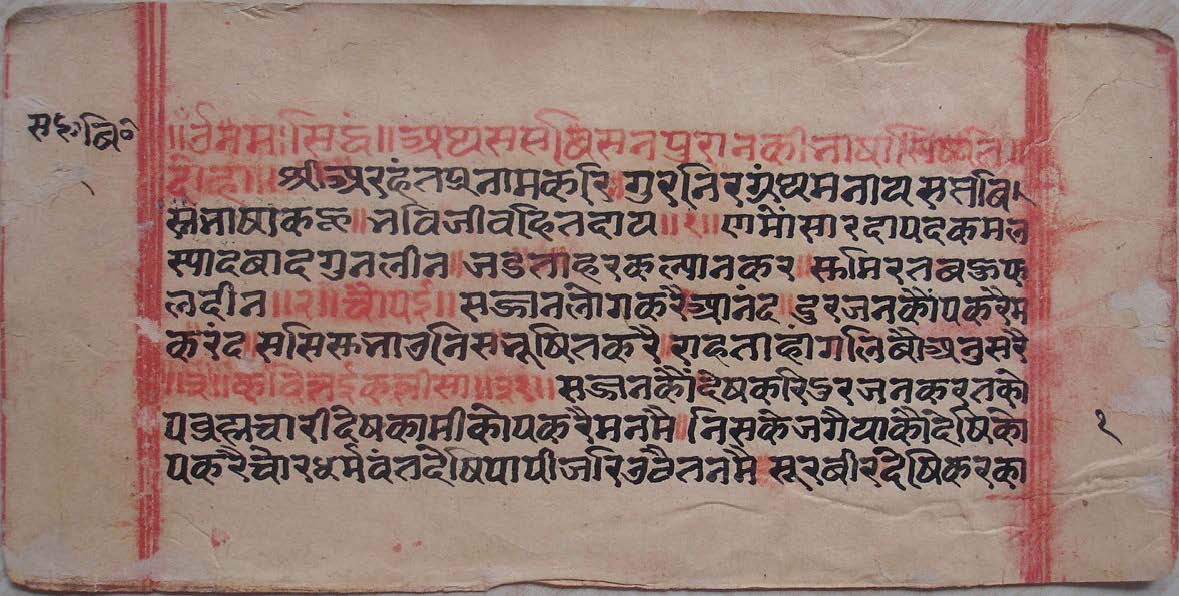 स॰ वि॰
॥ॐ नमः सिद्धं॥ अथ सप्तविसन पुरान की भाषा लिष्यते॥
दोहा॥ श्रीअरहंतप्रनामकरि॥गुरनिरग्रंथमनायसप्तवि
सनभाषाकहूं॥भविजीवहितदाय॥१॥एामौंसारदापदकमल
स्यादबादगुनलीन॥जडताहरकल्पानकर॥सुमिरतबहुफ
लदीन॥२॥चौपई॥सज्जनलोगकरैआनंद॥दुरजनकौपकरैम
करंद॥ससिसुभावनिसभूषितकरै॥राहताहांगलिबौअनुसरै
॥३॥ सज्जनकौंदेषकरिदुरजनकरतको
पब्रह्मचारीदेषकामीकोपकरैमनमै॥निसकेजगैयाकौंदेषिको
पकरैचोरधर्मवंतदेषिपापीजरिउठैतनमै॥सूरबीरदेषिकरका
१